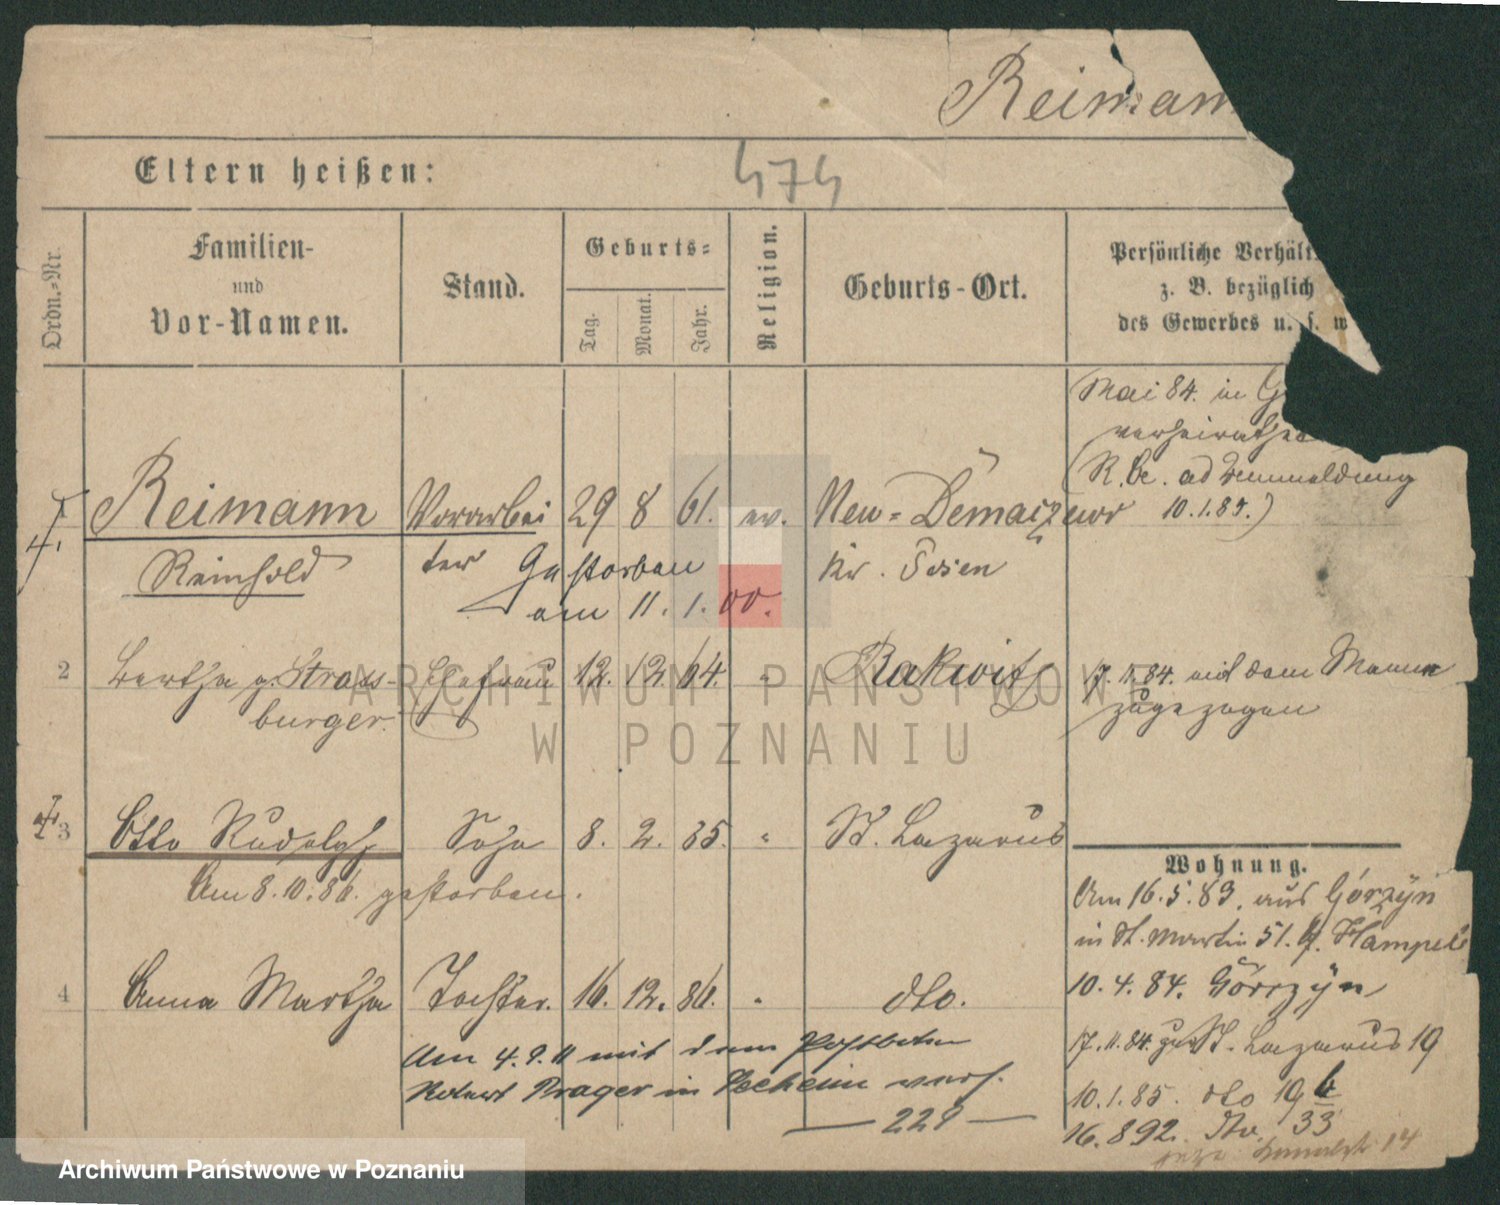 Reiman
Eltern heißen:
474
Ordn.-Nr.
Familien-
und
Vor-Namen.
Stand.
Geburts-
Tag.
Monat.
Jahr.
Religion.
Geburts-Ort.
Persönliche Verhält
z. B. bezüglich
des Gewerbes u. s. w
Mai 84. in G
verheirathet
10.1.85.)
1 Reimann Vorarbei 29 8 61. ev. Neu-
Reinhold ter Gestorben Kr. Posen
am 11.1.00.
2 Bertha g. Strass- Ehefrau 12. 12 64. " Rakwitz 17.11.84. mit dem Manne
burger. zugezogen
3 Otto Rudolph Sohn 8. 2. 85. " St. Lazarus
Am 8.10.86. gestorben.
Wohnung.
Am 16.5.83. aus Górzyn
in St. Martin 51. b.
4 Anna Martha Tochter. 16. 12. 86. " dto.
10.4.84. Górczyn
Am 4.9.11 mit dem Postboten
17.11.84. St. Lazarus 19
Robert Prager in verh.
10.1.85. dto 19 b
229
16.8 92. dto. 33
14
ARCHIWUM PAŃSTWOWE
W POZNANIU
Archiwum Państwowe w Poznaniu